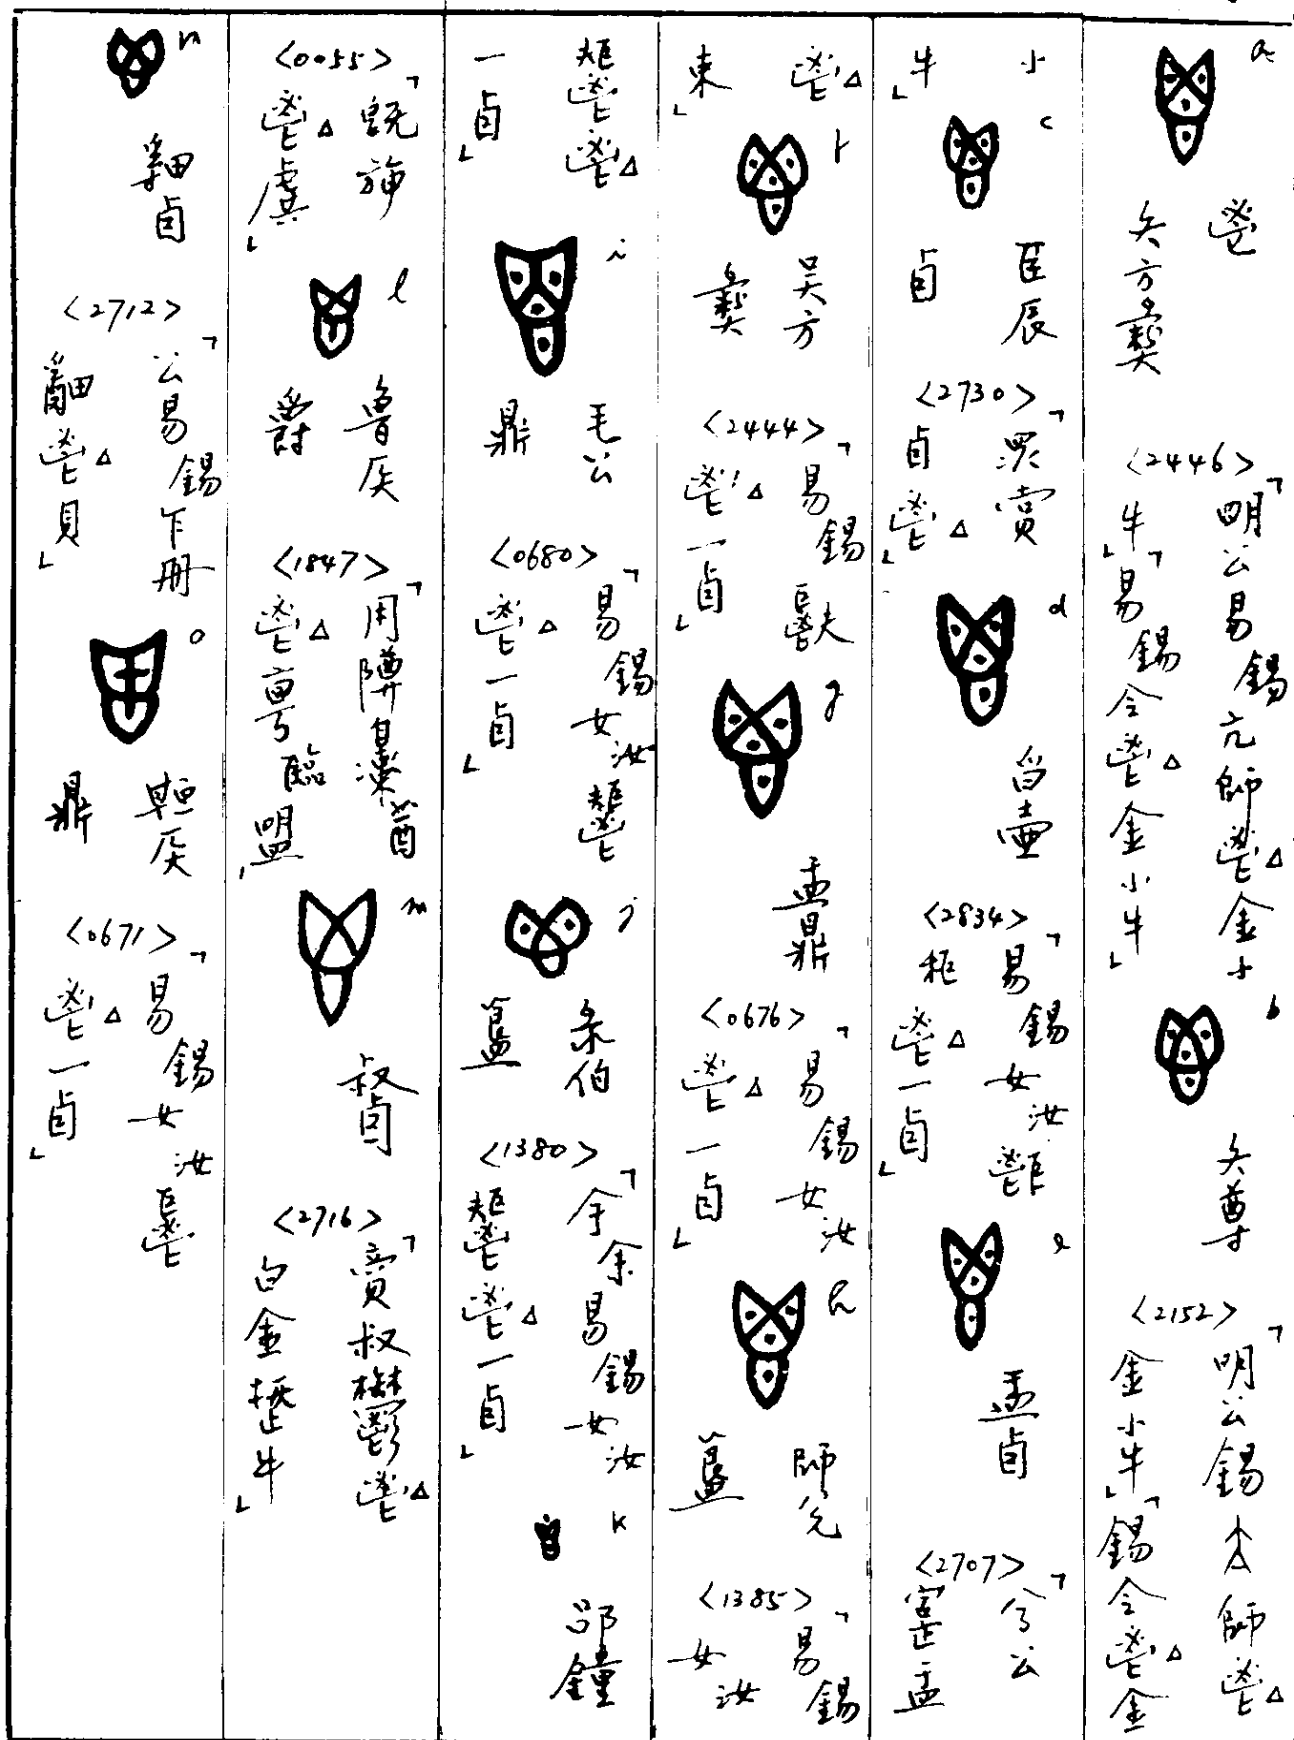 a
鬯
矢方彝
<2446>
「明公易錫亢師鬯△金小
牛」「易錫令鬯△金小牛」
b
矢尊
<2152>
「明公錫亢師鬯△
金小牛」「錫令鬯△金
小
牛」
c
臣辰
卣
<2730>
「眔賞
卣鬯△」
d
白壺
<2834>
「易錫女汝
秬鬯△一卣」
e
盂卣
<2707>
「兮公
盂
鬯△
束」
f
吴方
彝
<2444>
「易錫
鬯△一卣」
g
盂鼎
<0676>
「易錫女汝
鬯△一卣」
h
師兌
簋
<1385>
「易錫
女汝
鬯△
一卣」
i
毛公
鼎
<0680>
「易錫女汝
鬯△一卣」
j
彔伯
簋
<1380>
「余易錫女汝
鬯△一卣」
k
郘鐘
<0055>
「既旃
鬯△虡」
l
魯侯
爵
<1847>
「用隣
鬯△臨盟」
m
叔卣
<2716>
「賞叔鬱鬯△
白金牛」
n
卣
<2712>
「公易錫乍册
鬯△貝」
o
侯
鼎
<0671>
「易錫女汝
鬯△一卣」